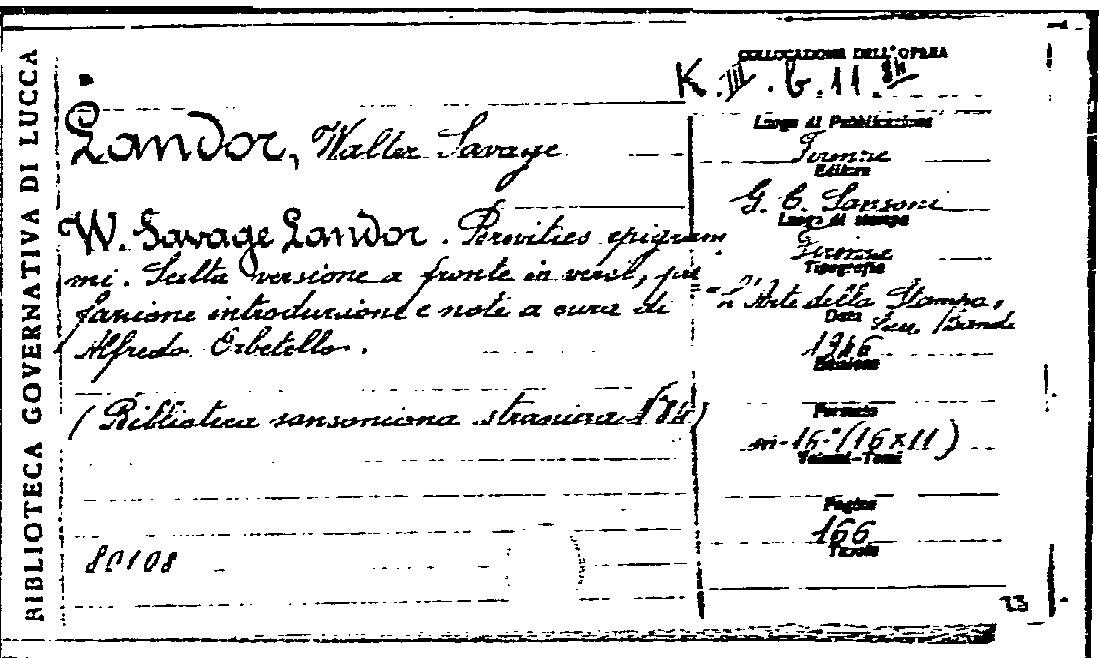 BIBLIOTECA GOVERNATIVA DI LUCCA
COLLOCAZIONE DELL'OPERA
K. III. b. 11.
Landor, Walter Savage
W. Savage Landor. epigram
mi. Scelta versione a fronte in versi, pre
fazione introduzione e note a cura di
Alfredo Orbetello.
(Biblioteca sansoniana straniera
80108
Luogo di Pubblicazione
Firenze
Editore
G. C. Sansoni
Luogo di stampa
Firenze
Tipografia
L'Arte della Stampa,
Data
1946
Edizione
Formato
in-16.° (16x11)
Volumi-Tomi
Pagine
166
Tavole
13